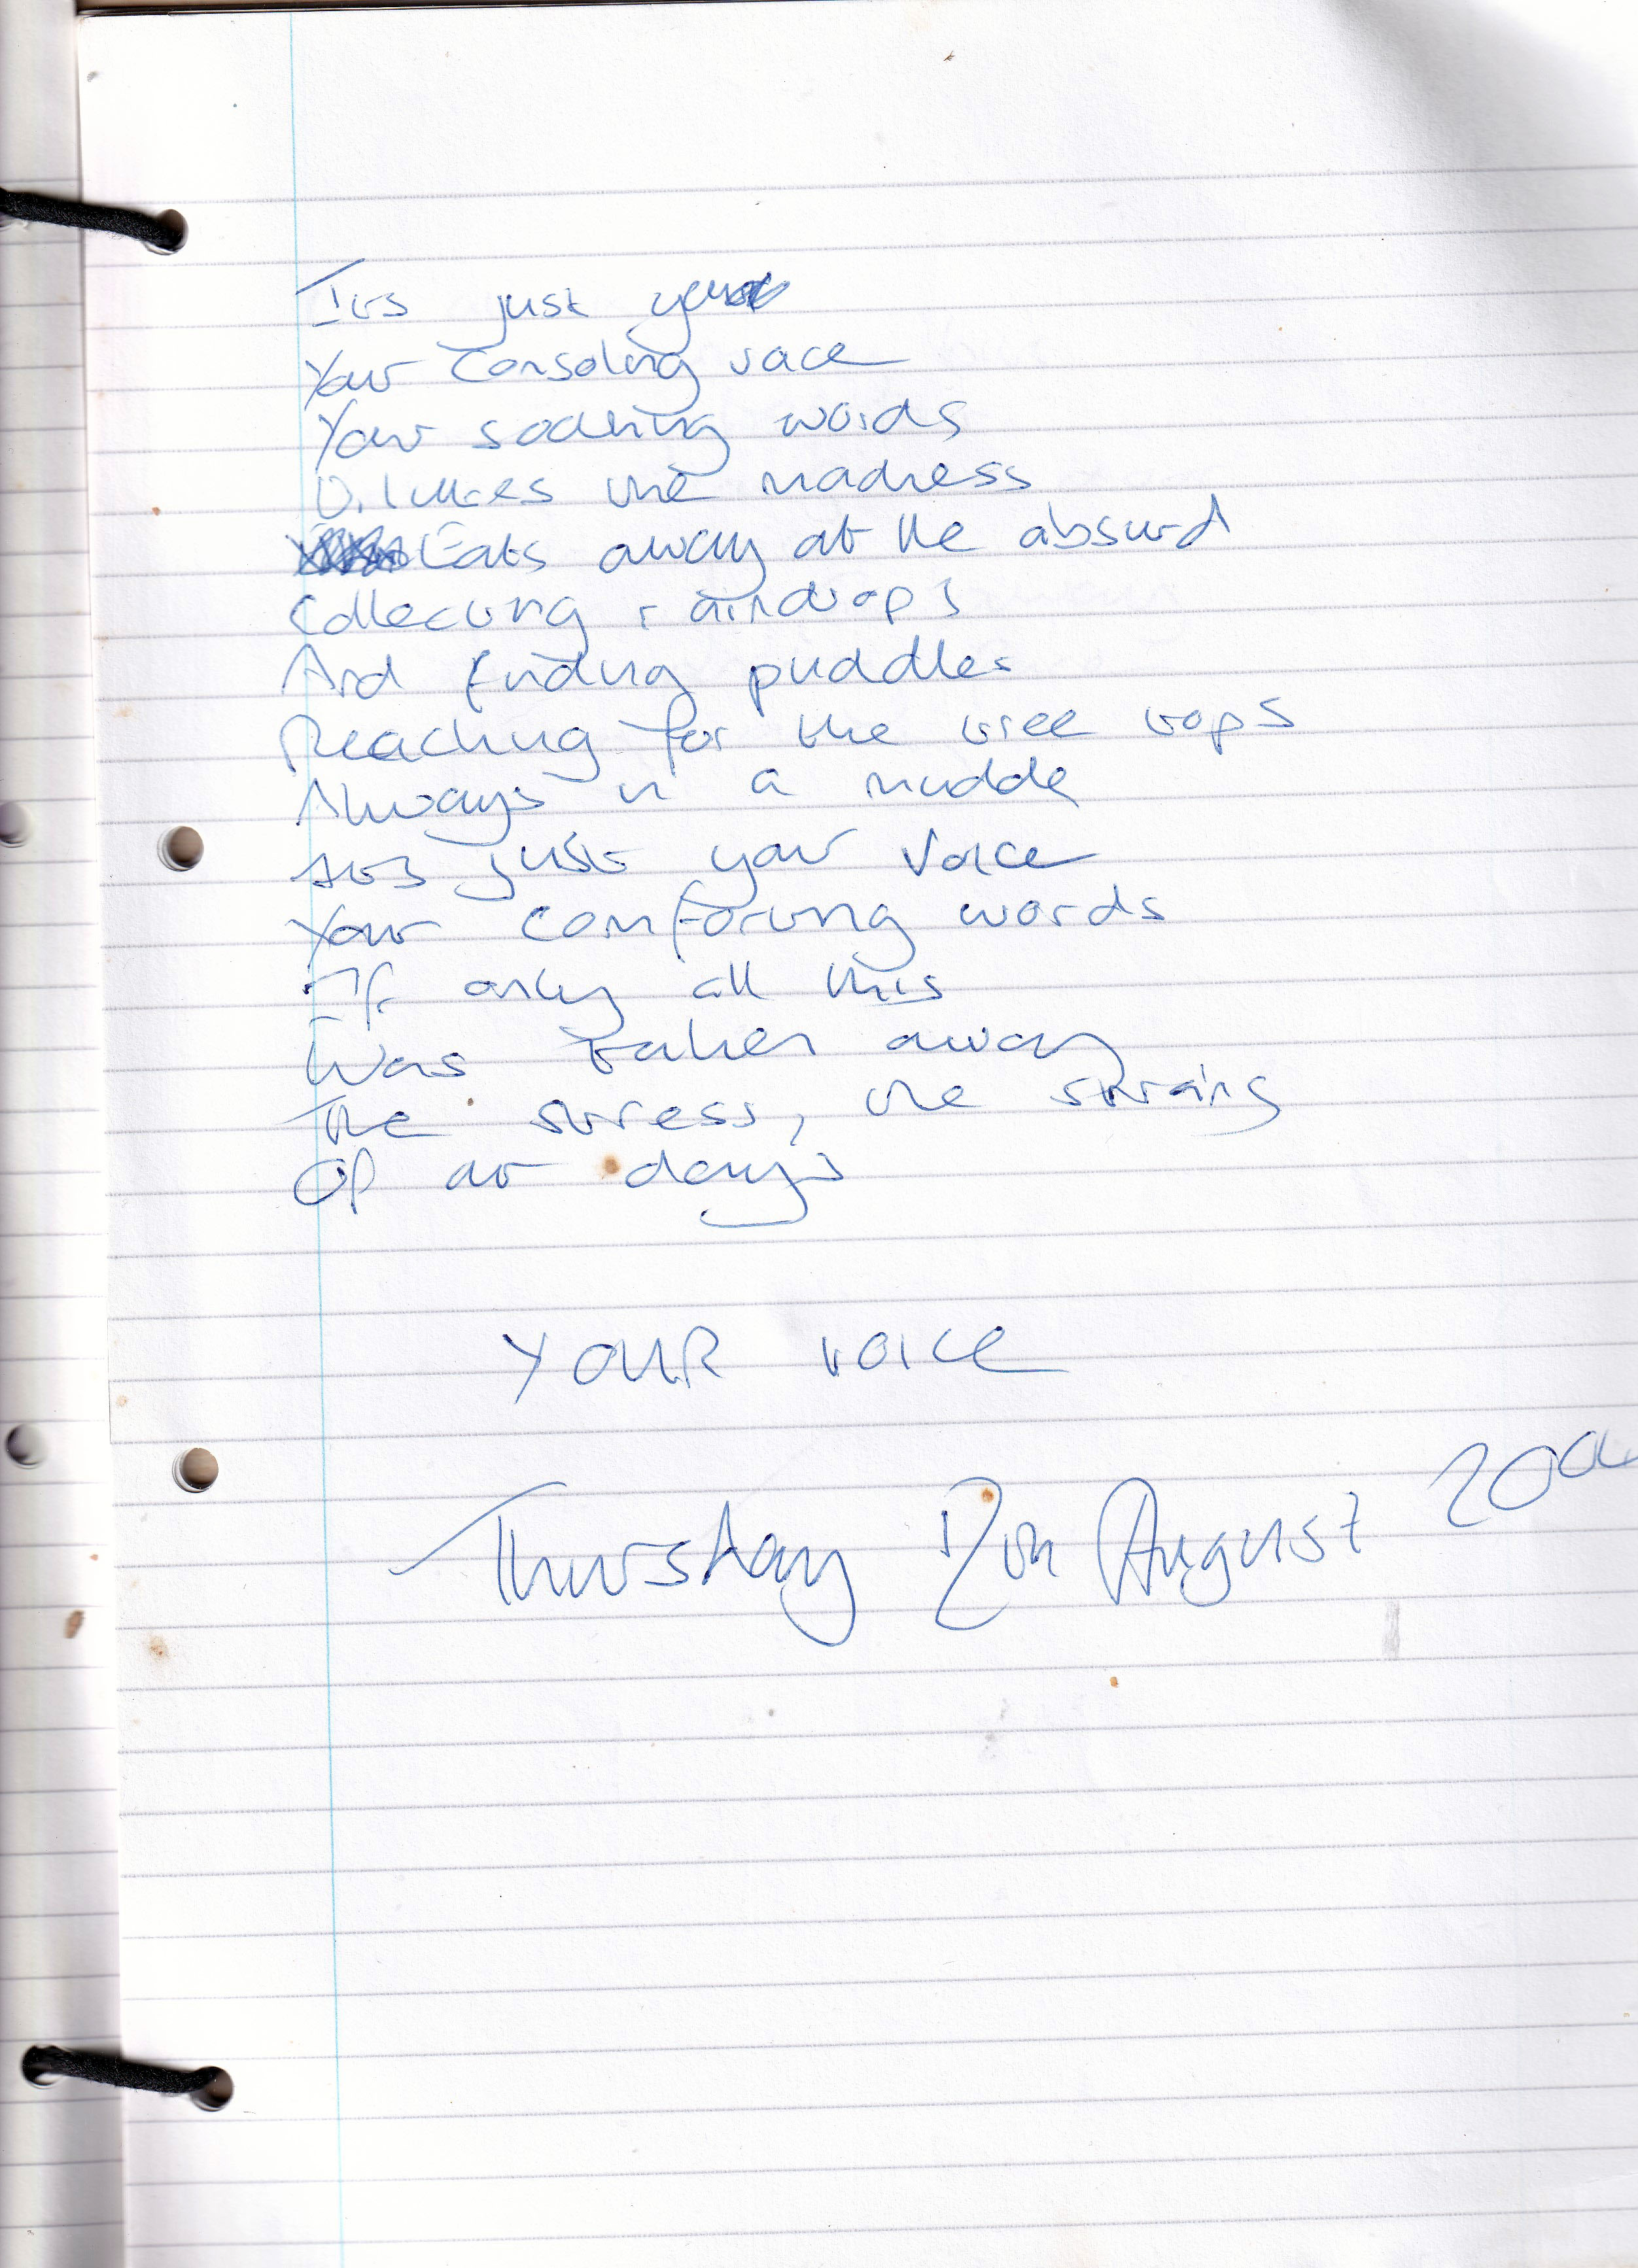 Its just you
Your consoling voice
Your soothing words
Dilutes the madness
Eats away at the absurd
Collecting raindrops
And finding puddles
Reaching for the tree tops
Always in a muddle
Its just your voice
Your comforting words
If only all this
Was taken away
The stress, the strains
Of our days
YOUR VOICE
Thursday August